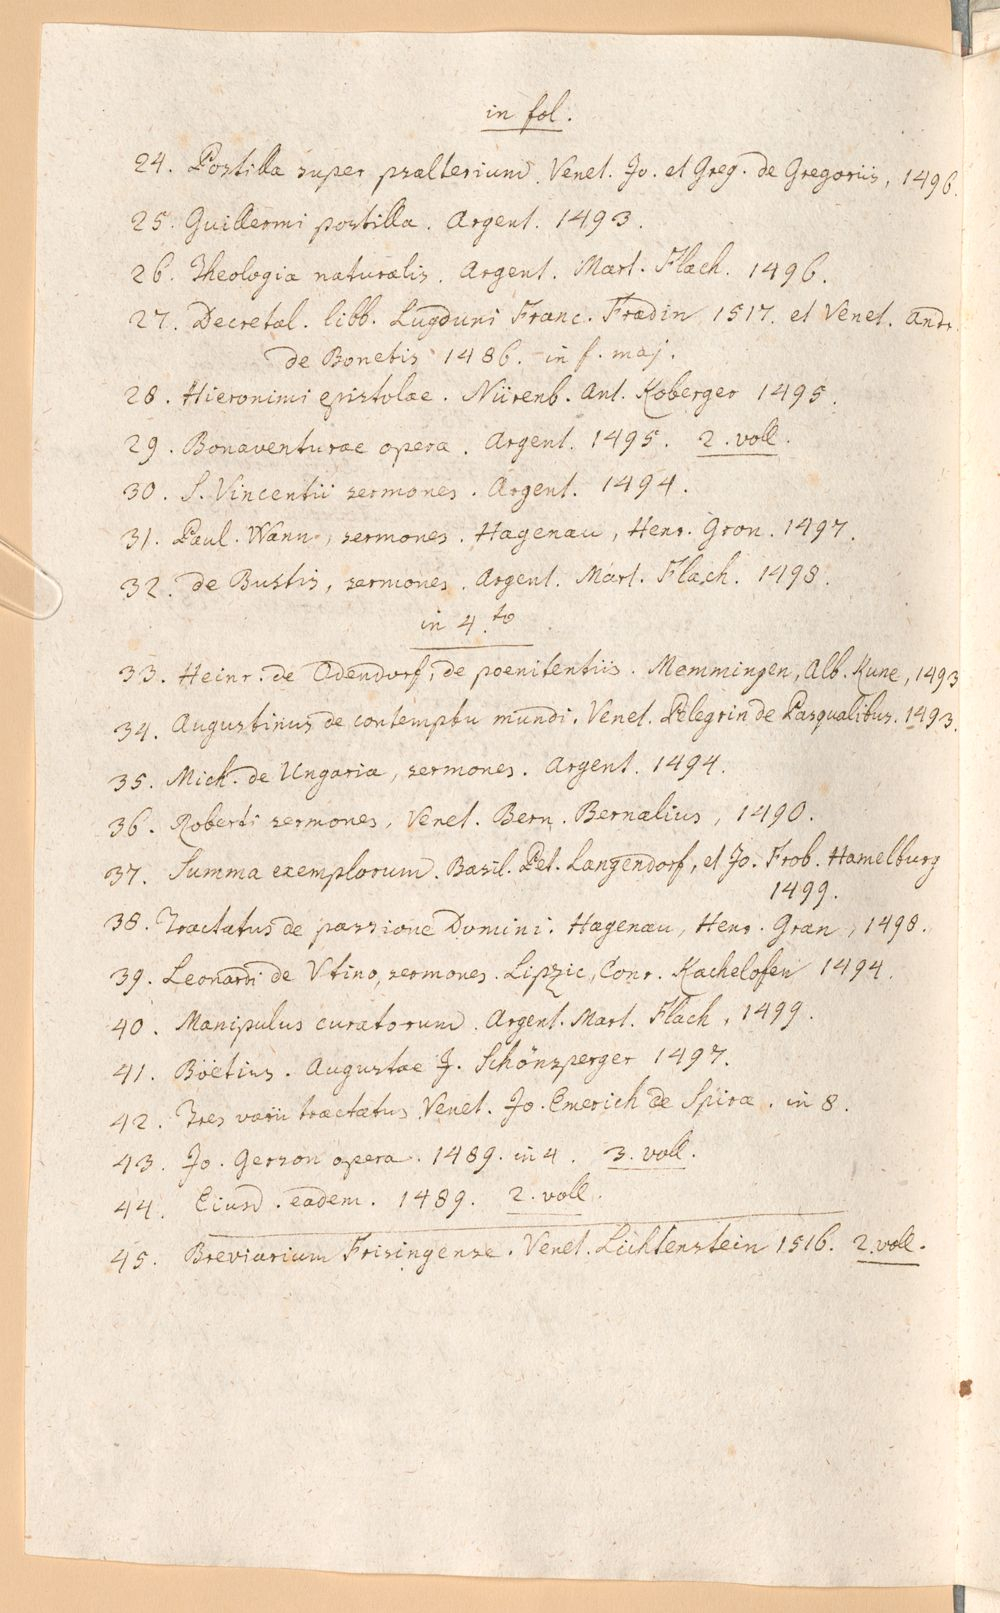 in fol.
24. Postilla super psalterium. Venet. Jo. et Greg. de Gregoriis, 1496.
25. Guillermi postilla. Argent. 1493.
26. Theologia naturalis. Argent. Mart. Flach. 1496.
27. Decretal. libb. Lugduni Franc. Fradin 1517. et Venet. Andr.
de Bonetis 1486. in f. maj.
28. Hieronimi epistolae. Nürenb. Ant. Koberger 1495.
29. Bonaventurae opera. Argent. 1495. 2. voll.
30. S. Vincentii sermones. Argent. 1494.
31. Paul. Wann, sermones. Hagenau, Henr. Gron. 1497.
32. de Bustis, sermones. Argent. Mart. Flach. 1498.
in 4.to
33. Heinr. de Odendorf, de poenitentiis. Memmingen, Alb. Kune, 1493
34. Augustinus de contemptu mundi. Venet. Pelegrin de Pasqualibus. 1493.
35. Mich. de Ungaria, sermones. Argent. 1494.
36. Roberti sermones, Venet. Bern. Bernalius, 1490.
37. Summa exemplorum. Basil. Pet. Langendorf, et Jo. Frob. Hamelburg
1499.
38. Tractatus de passione Domini. Hagenau, Henr. Gran, 1498.
39. Leonardi de Utino, sermones. Lipzic, Conr. Kachelofen 1494.
40. Manipulus curatorum. Argent. Mart. Flach, 1499.
41. Böetius. Augustae J. Schönsperger 1497.
42. Tres varii tractatus Venet. Jo. Emerich de Spira. in 8.
43. Jo. Gerson opera. 1489. in 4. 3. voll.
44. Eiusd. eadem. 1489. 2. voll.
45. Breviarium Frisingense. Venet. Lichtenstein 1516. 2. voll.